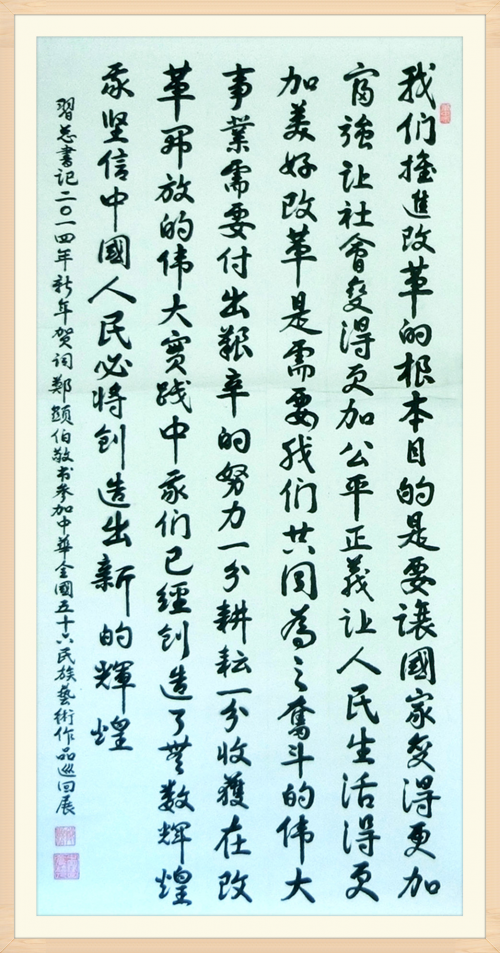 我们推進改革的根本目的是要讓國家变得更加
富強让社會变得更加公平正義让人民生活得更
加美好改革是需要我们共同為之奮斗的伟大
事業需要付出艰辛的努力一分耕耘一分收獲在改
革开放的伟大实践中我们已經创造了無数輝煌
我坚信中國人民必将创造出新的輝煌
習总書记二〇一四年新年贺词鄭伯敬书参加中華全國五十六民族藝術作品巡回展